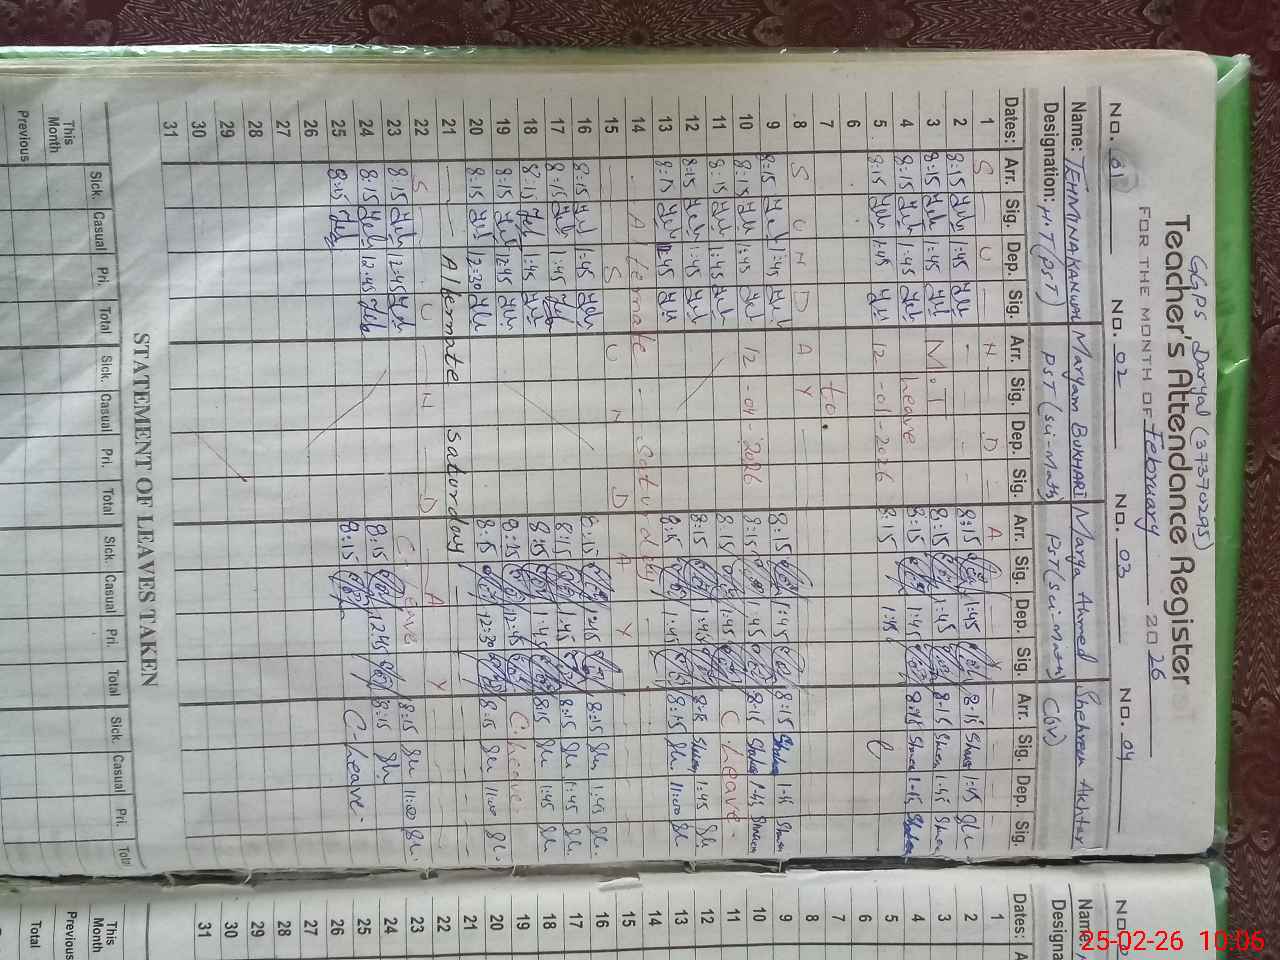 GGPS Daryal (37370295)
Teacher's Attendance Register
FOR THE MONTH OF February 2026
No. 01 No. 02 No. 03 No. 04
Name: TEHMINA KANWAL Maryam BUKHARI Marya Ahmed Shehreen Akhtar
Designation: H.T (PST) PST (Sci-Math) PST (Sci-Math) C(IV)
Dates: Arr. Sig. Dep. Sig. Arr. Sig. Dep. Sig. Arr. Sig. Dep. Sig. Arr. Sig. Dep. Sig.
1 S U N D A Y
2 8:15 1:45 8:15 1:45 8:15 1:45
3 8:15 1:45 M.T 8:15 1:45 8:15 1:45
4 8:15 1:45 Leave 8:15 1:45 8:15 1:45
5 8:15 1:45 12-01-2026 8:15 1:45
6
7 to
8 S U N D A Y
9 8:15 1:45 8:15 1:45 8:15 1:45
10 8:15 1:45 12-04-2026 8:15 1:45 8:15 1:45
11 8:15 1:45 8:15 1:45 C. Leave
12 8:15 1:45 8:15 1:45 8:15 1:45
13 8:15 12:45 8:15 1:45 8:15 11:00
14 Alternate Saturday
15 S U N D A Y
16 8:15 1:45 8:15 12:15 8:15 1:45
17 8:15 1:45 8:15 1:45 8:15 1:45
18 8:15 1:45 8:15 1:45 8:15 1:45
19 8:15 12:45 8:15 12:45 C. Leave
20 8:15 12:30 8:15 12:30 8:15 11:00
21 Alternate Saturday
22 S U N D A Y
23 8:15 12:45 C. Leave 8:15 11:00
24 8:15 12:45 8:15 12:45 8:15
25 8:15 8:15 C-Leave
26
27
28
29
30
31
STATEMENT OF LEAVES TAKEN
Sick. Casual Pri. Total Sick. Casual Pri. Total Sick. Casual Pri. Total Sick. Casual Pri. Total
This Month
Previous
Dates:
Name:
1
2
3
4
5
6
7
8
9
10
11
12
13
14
15
16
17
18
19
20
21
22
23
24
25
26
27
28
29
30
31
This Month
Previous
Total
25-02-26 10:06